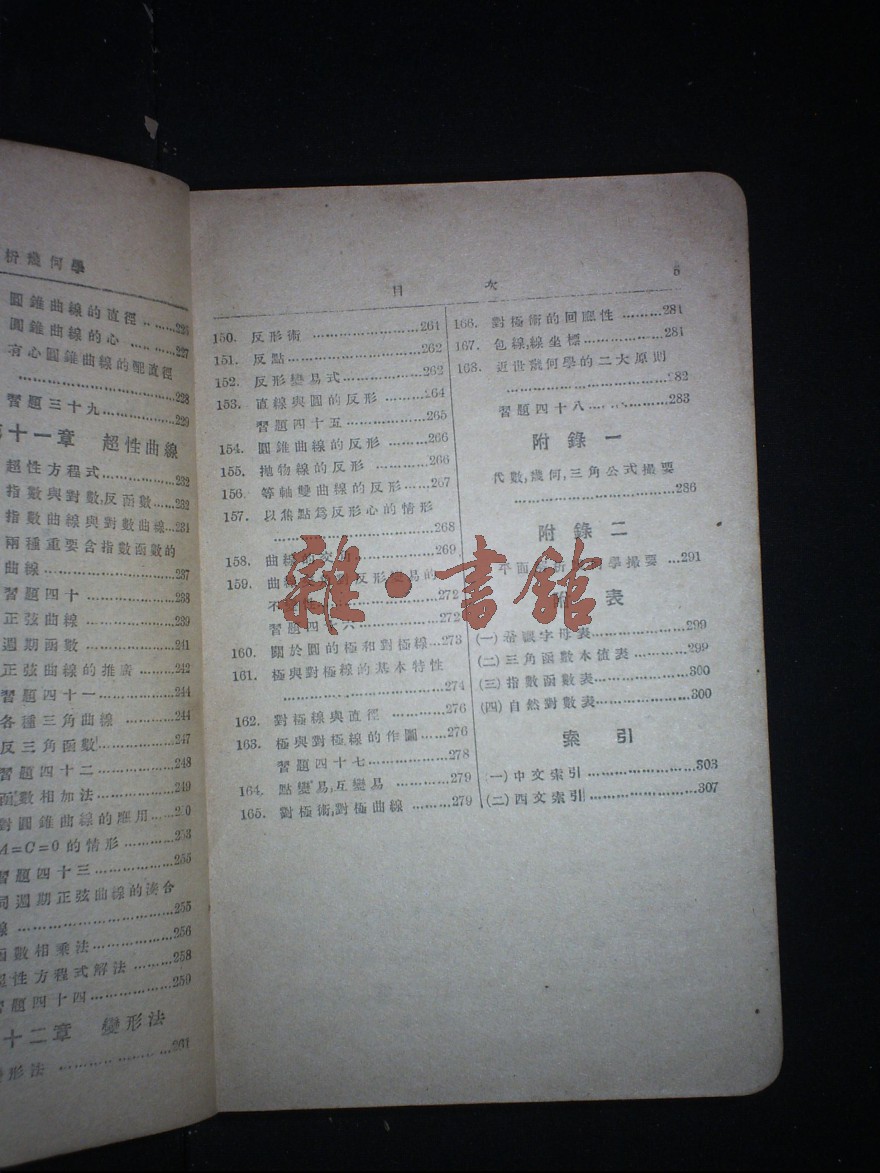 析幾何學
圓錐曲線的直徑 ........226
圓錐曲線的心 ............227
有心圓錐曲線的配直徑
........................228
習題三十九...............229
第十一章 超性曲線
超性方程式...............232
指數與對數,反函數......232
指數曲線與對數曲線...234
兩種重要含指數函數的
曲線 .....................237
習題四十 ...............238
正弦曲線 ...............239
週期函數 ...............241
正弦曲線的推廣 ......242
習題四十一............244
各種三角曲線 .........244
反三角函數............247
習題四十二 ............248
函數相加法............249
對圓錐曲線的應用...
A=C=0的情形............253
習題四十三 ............255
同週期正弦曲線的湊合
線 .....................255
函數相乘法...............256
超性方程式解法 ......258
習題四十四............259
十二章 變形法
變形法 ..................261
目 次 5
150. 反形術 ...............261
151. 反點..................262
152. 反形變易式.........262
153. 直線與圓的反形 ...264
習題四十五............265
154. 圓錐曲線的反形 ...266
155. 拋物線的反形 ......266
156. 等軸雙曲線的反形...267
157. 以焦點爲反形心的情形
........................268
158. 曲線的交角 .........269
159. 曲線 反形變易的
不 ............272
習題四十六............272
160. 關於圓的極和對極線...273
161. 極與對極線的基本特性
........................274
162. 對極線與直徑 .........276
163. 極與對極線的作圖......276
習題四十七............278
164. 點變易,互變易 .........279
165. 對極術,對極曲線 ......279
166. 對極術的回應性 ......281
167. 包線,線坐標............281
168. 近世幾何學的二大原則
........................282
習題四十八............283
附錄一
代數,幾何,三角公式撮要
........................286
附錄二
平面解析幾何學撮要 ...291
附 表
(一)希臘字母表............299
(二)三角函數本值表......299
(三)指數函數表............300
(四)自然對數表............300
索 引
(一)中文索引 ...............303
(二)西文索引...............307
雜·書館